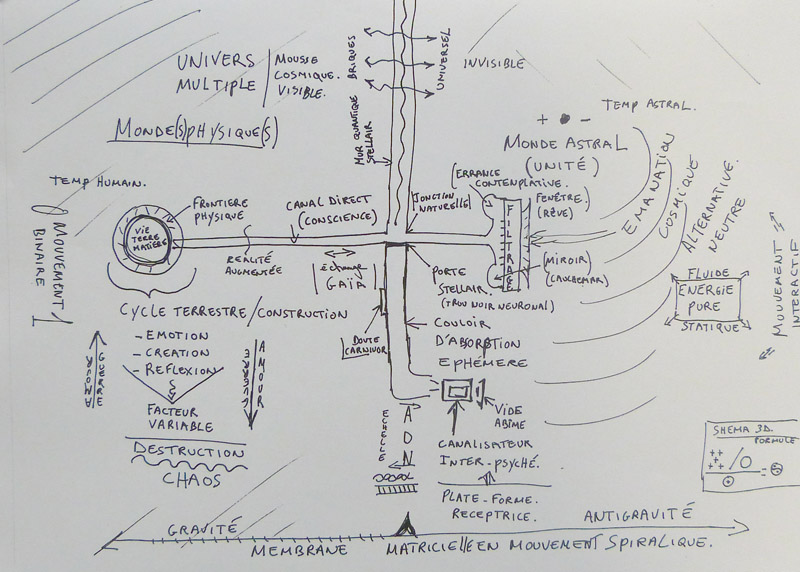 UNIVERS
MULTIPLE
MOUSSE
COSMIQUE.
VISIBLE.
BRIQUES
UNIVERSEL
INVISIBLE
MONDE(S) PHYSIQUE(S)
MUR QUANTIQUE
STELLAIR
+ ● -
TEMP ASTRAL.
MONDE ASTRAL
(UNITÉ)
EMANATION
COSMIQUE
ALTERNATIVE.
NEUTRE
TEMP HUMAIN.
FRONTIERE
PHYSIQUE
VIE
TERRE
MATIÈRE
CANAL DIRECT
(CONSCIENCE)
JONCTION
NATURELLE
ERRANCE
CONTEMPLATIVE.
FENÊTRE.
(RÊVE)
FILTRAGE
MOUVEMENT
BINAIRE
0
1
REALITÉ
AUGMENTÉE
échange
GAÏA
PORTE
STELLAIR.
(TROU NOIR NEURONAL)
(MIROIR)
(CAUCHEMAR)
FLUIDE
ENERGIE
PURE
STATIQUE
MOUVEMENT
INTERACTIF
CYCLE TERRESTRE/CONSTRUCTION
- EMOTION
- CREATION
- REFLEXION
FACTEUR
VARIABLE
DESTRUCTION
CHAOS
GUERRE
AMOUR
AMOUR
GUERRE
DOUTE
CARNIVOR
COULOIR
D'ABSORPTION
EPHÉMERE
VIDE
ABÎME
ECHELLE
ADN
CANALISATEUR
INTER-PSYCHÉ.
PLATE-FORME.
RECEPTRICE.
SHEMA 3D.
FORMULE
GRAVITÉ
ANTIGRAVITÉ
MEMBRANE MATRICIELLE EN MOUVEMENT SPIRALIQUE.